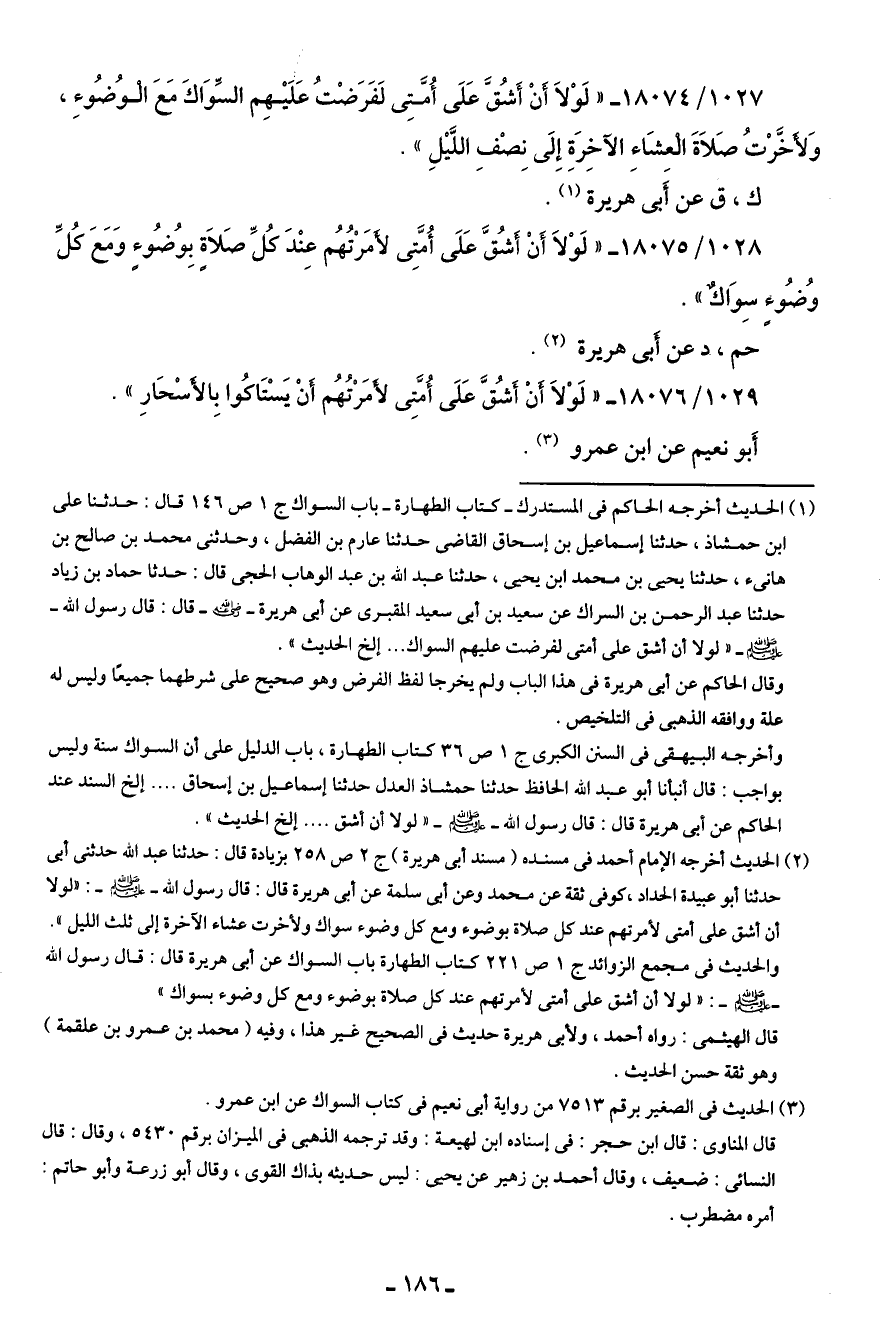 ١٠٢٧/ ١٨٠٧٤ـ « لَوْلاَ أَنْ أَشُقَّ عَلَى أُمَّتِى لَفَرَضْتُ عَلَيْهِم السِّوَاكَ مَعَ الْوُضُوءِ ،
وَلأَخَّرْتُ صَلاَةَ الْعِشَاءِ الآخِرَةِ إِلَى نِصْفِ اللَّيْلِ » .
ك ، ق عن أَبى هريرة (١) .
١٠٢٨/ ١٨٠٧٥ـ « لَوْلاَ أَنْ أَشُقَّ عَلَى أُمَّتِى لأَمَرْتُهُم عِنْدَ كُلِّ صَلاَةٍ بِوُضُوءٍ وَمَعَ كُلِّ
وضُوءٍ سِوَاكٌ » .
حم ، د عن أَبى هريرة (٢) .
١٠٢٩/ ١٨٠٧٦ـ « لَوْلاَ أَنْ أَشُقَّ عَلَى أُمَّتِى لأَمَرْتُهُم أَنْ يَسْتَاكُوا بِالأَسْحَارِ » .
أَبو نعيم عن ابن عمرو (٣) .
(١) الحديث أخرجه الحاكم فى المستدرك ـ كتاب الطهارة ـ باب السواك ج ١ ص ١٤٦ قال : حدثنا على
ابن حمشاذ ، حدثنا إسماعيل بن إسحاق القاضى حدثنا عارم بن الفضل ، وحدثنى محمد بن صالح بن
هانىء ، حدثنا يحيى بن محمد ابن يحيى ، حدثنا عبد الله بن عبد الوهاب الحجى قال : حدثا حماد بن زياد
حدثنا عبد الرحمن بن السراك عن سعيد بن أبى سعيد المقبرى عن أبى هريرة ـ رضي الله عنه ـ قال : قال رسول الله ـ
ﷺ ـ « لولا أن أشق على أمتى لفرضت عليهم السواك... إلخ الحديث » .
وقال الحاكم عن أبى هريرة فى هذا الباب ولم يخرجا لفظ الفرض وهو صحيح على شرطهما جميعًا وليس له
علة ووافقه الذهبى فى التلخيص .
وأخرجه البيهقى فى السنن الكبرى ج ١ ص ٣٦ كتاب الطهارة ، باب الدليل على أن السواك سنة وليس
بواجب : قال أنبأنا أبو عبد الله الحافظ حدثنا حمشاذ العدل حدثنا إسماعيل بن إسحاق .... إلخ السند عند
الحاكم عن أبى هريرة قال : قال رسول الله ـ ﷺ ـ « لولا أن أشق .... إلخ الحديث » .
(٢) الحديث أخرجه الإمام أحمد فى مسنده ( مسند أبى هريرة ) ج ٢ ص ٢٥٨ بزيادة قال : حدثنا عبد الله حدثنى أبى
حدثنا أبو عبيدة الحداد ،كوفى ثقة عن محمد وعن أبى سلمة عن أبى هريرة قال : قال رسول الله ـ ﷺ ـ : «لولا
أن أشق على أمتى لأمرتهم عند كل صلاة بوضوء ومع كل وضوء سواك ولأخرت عشاء الآخرة إلى ثلث الليل ».
والحديث فى مجمع الزوائد ج ١ ص ٢٢١ كتاب الطهارة باب السواك عن أبى هريرة قال : قال رسول الله
ـ ﷺ ـ : « لولا أن أشق على أمتى لأمرتهم عند كل صلاة بوضوء ومع كل وضوء بسواك »
قال الهيثمى : رواه أحمد ، ولأبى هريرة حديث فى الصحيح غير هذا ، وفيه ( محمد بن عمرو بن علقمة )
وهو ثقة حسن الحديث .
(٣) الحديث فى الصغير برقم ٧٥١٣ من رواية أبى نعيم فى كتاب السواك عن ابن عمرو .
قال المناوى : قال ابن حجر : فى إسناده ابن لهيعة : وقد ترجمه الذهبى فى الميزان برقم ٥٤٣٠ ، وقال : قال
النسائى : ضعيف ، وقال أحمد بن زهير عن يحيى : ليس حديثه بذاك القوى ، وقال أبو زرعة وأبو حاتم :
أمره مضطرب .
ـ ١٨٦ ـ